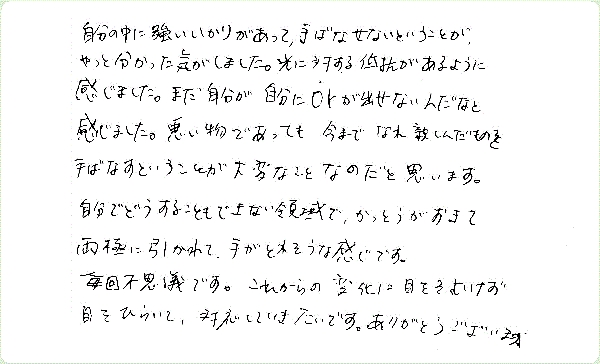 自分の中に強いいかりがあって、手ばなせないということが、
やっと分かった気がしました。光に対する抵抗があるように
感じました。まだ自分が自分にOKが出せないんだなと
感じました。悪い物であっても今までなれ親しんだものを
手ばなすということが大変なことなのだと思います。
自分でどうすることもできない領域で、かっとうがおきて
両極に引かれて、手がとれそうな感じです。
毎回不思議です。これからの変化に目をそむけず
目をひらいて、対応していきたいです。ありがとうございます